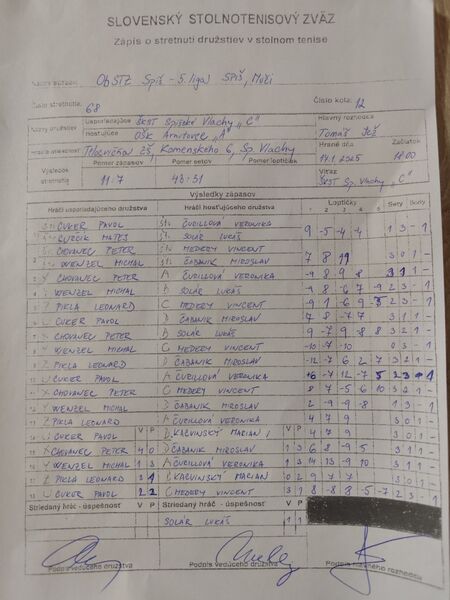 SLOVENSKÝ STOLNOTENISOVÝ ZVÄZ
Zápis o stretnutí družstiev v stolnom tenise
ObSTZ Spiš - 5. liga SPIŠ, Muži
Číslo stretnutia: 68 Číslo kola: 12
Názvy družstiev Usporiadajúce ŠKST Spišské Vlachy „C" Hlavný rozhodca
hosťujúce OŠK Arnutovce „A" Tomáš
Telocvičňa ZŠ, Komenského 6, Sp. Vlachy Hrané dňa Začiatok
Pomer zápasov Pomer setov Pomer loptičiek 14.1.2025 18:00
Výsledok stretnutia 11:7 48:31 Víťaz ŠKST Sp. Vlachy „C"
Výsledky zápasov
Hráči usporiadajúceho družstva Hráči hosťujúceho družstva Loptičky Sety Body
CUKER PAVOL ČURILLOVÁ VERONIKA
MATEJ SOLÁR LUKÁŠ 9 -5 -4 -4 1 3 - 1
CHOVANEC PETER MEDERY VINCENT
WENZEL MICHAL ČABANIK MIROSLAV 7 8 11 3 0 1 -
CHOVANEC PETER A ČURILLOVÁ VERONIKA -9 8 9 8 3 1 1 -
WENZEL MICHAL B SOLÁR LUKÁŠ 2 3 - 1
PIKLA LEONARD C MEDERY VINCENT -9 1 -6 9 3 2 1 -
CUKER PAVOL D ČABANIK MIROSLAV 7 8 -7 7 3 1 1 -
CHOVANEC PETER B SOLÁR LUKÁŠ 9 -7 9 -8 8 3 2 1 -
WENZEL MICHAL C MEDERY VINCENT -10 -7 -10 0 3 - 1
PIKLA LEONARD D ČABANIK MIROSLAV -12 -7 6 2 7 3 2 1 -
CUKER PAVOL A ČURILLOVÁ VERONIKA
CHOVANEC PETER C MEDERY VINCENT 8 7 -5 6 3 1
WENZEL MICHAL D ČABANIK MIROSLAV 2 -9 -9 -8 1 3 - 1
PIKLA LEONARD A ČURILLOVÁ VERONIKA 4 7 9 3 0 1
CUKER PAVOL V P KAČVINSKÝ MARIAN V P 4 7 9 3 0 1
CHOVANEC PETER 4 0 D ČABANIK MIROSLAV 1 3 6 8 -9 5 3 1
WENZEL MICHAL 1 3 A ČURILLOVÁ VERONIKA 1 3 14 13 -9 10 3 1
PIKLA LEONARD 3 1 KAČVINSKÝ MARIAN 0 2 9 7 7 3 0 1
CUKER PAVOL 2 2 C MEDERY VINCENT 3 1 8 -8 8 -5 -7 2 3 - 1
Striedaný hráč - úspešnosť V P Striedaný hráč - úspešnosť V P
SOLÁR LUKÁŠ 1 1
Podpis vedúceho družstva Podpis vedúceho družstva Podpis hlavného rozhodcu